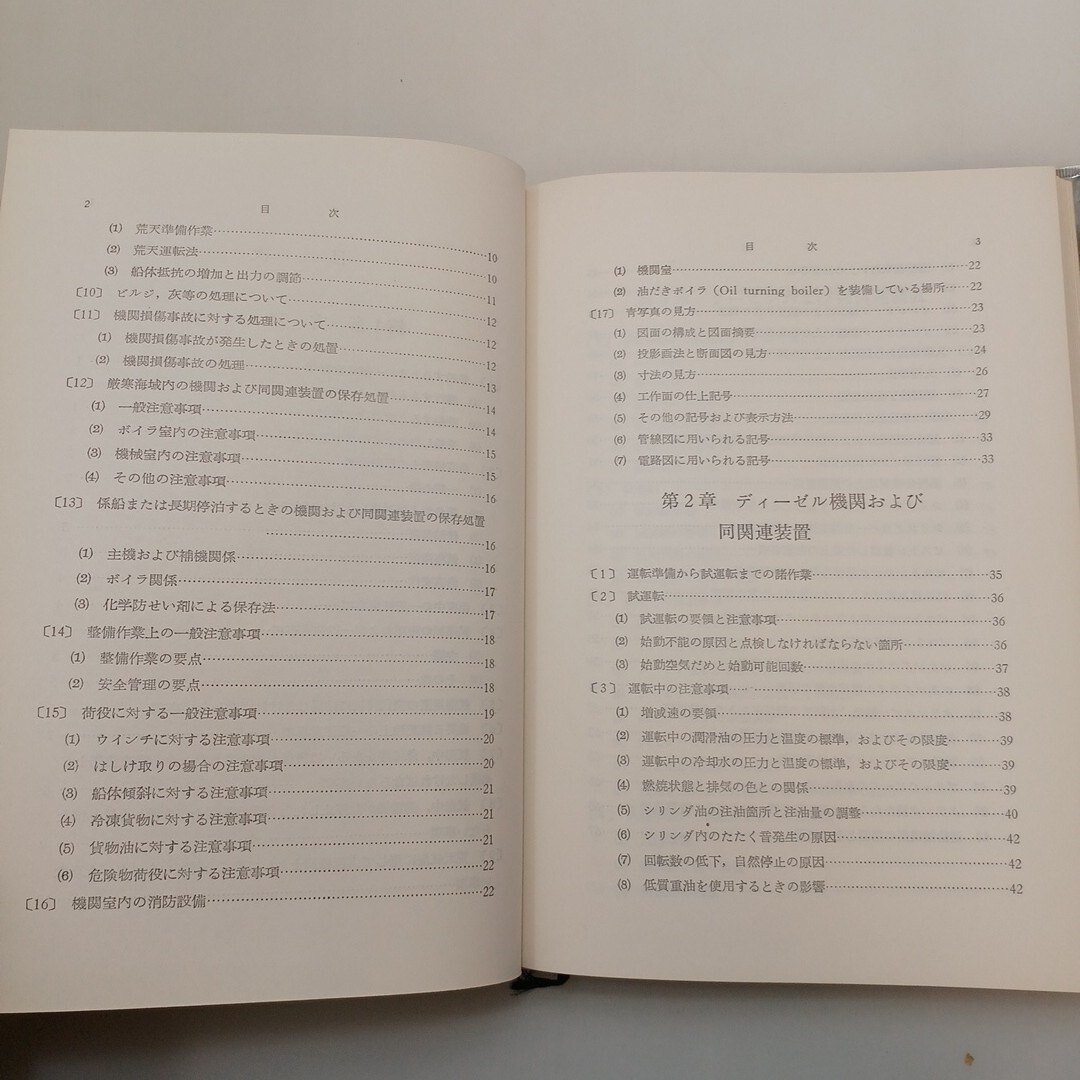 2
目 次
(1) 荒天準備作業……10
(2) 荒天運転法……10
(3) 船体抵抗の増加と出力の調節……11
〔10〕 ビルジ，灰等の処理について……12
〔11〕 機関損傷事故に対する処理について……12
(1) 機関損傷事故が発生したときの処置……12
(2) 機関損傷事故の処理……13
〔12〕 厳寒海域内の機関および同関連装置の保存処置……14
(1) 一般注意事項……14
(2) ボイラ室内の注意事項……15
(3) 機械室内の注意事項……15
(4) その他の注意事項……16
〔13〕 係船または長期停泊するときの機関および同関連装置の保存処置
……16
(1) 主機および補機関係……16
(2) ボイラ関係……17
(3) 化学防せい剤による保存法……17
〔14〕 整備作業上の一般注意事項……18
(1) 整備作業の要点……18
(2) 安全管理の要点……18
〔15〕 荷役に対する一般注意事項……19
(1) ウインチに対する注意事項……20
(2) はしけ取りの場合の注意事項……20
(3) 船体傾斜に対する注意事項……21
(4) 冷凍貨物に対する注意事項……21
(5) 貨物油に対する注意事項……21
(6) 危険物荷役に対する注意事項……22
〔16〕 機関室内の消防設備……22
目 次
3
(1) 機関室……22
(2) 油だきボイラ（Oil turning boiler）を装備している場所……22
〔17〕 青写真の見方……23
(1) 図面の構成と図面摘要……23
(2) 投影画法と断面図の見方……24
(3) 寸法の見方……26
(4) 工作面の仕上記号……27
(5) その他の記号および表示方法……29
(6) 管線図に用いられる記号……33
(7) 電路図に用いられる記号……33
第2章 ディーゼル機関および
同関連装置
〔1〕 運転準備から試運転までの諸作業……35
〔2〕 試運転……36
(1) 試運転の要領と注意事項……36
(2) 始動不能の原因と点検しなければならない箇所……36
(3) 始動空気だめと始動可能回数……37
〔3〕 運転中の注意事項……38
(1) 増減速の要領……38
(2) 運転中の潤滑油の圧力と温度の標準，およびその限度……39
(3) 運転中の冷却水の圧力と温度の標準，およびその限度……39
(4) 燃焼状態と排気の色との関係……39
(5) シリンダ油の注油箇所と注油量の調整……40
(6) シリンダ内のたたく音発生の原因……42
(7) 回転数の低下，自然停止の原因……42
(8) 低質重油を使用するときの影響……42